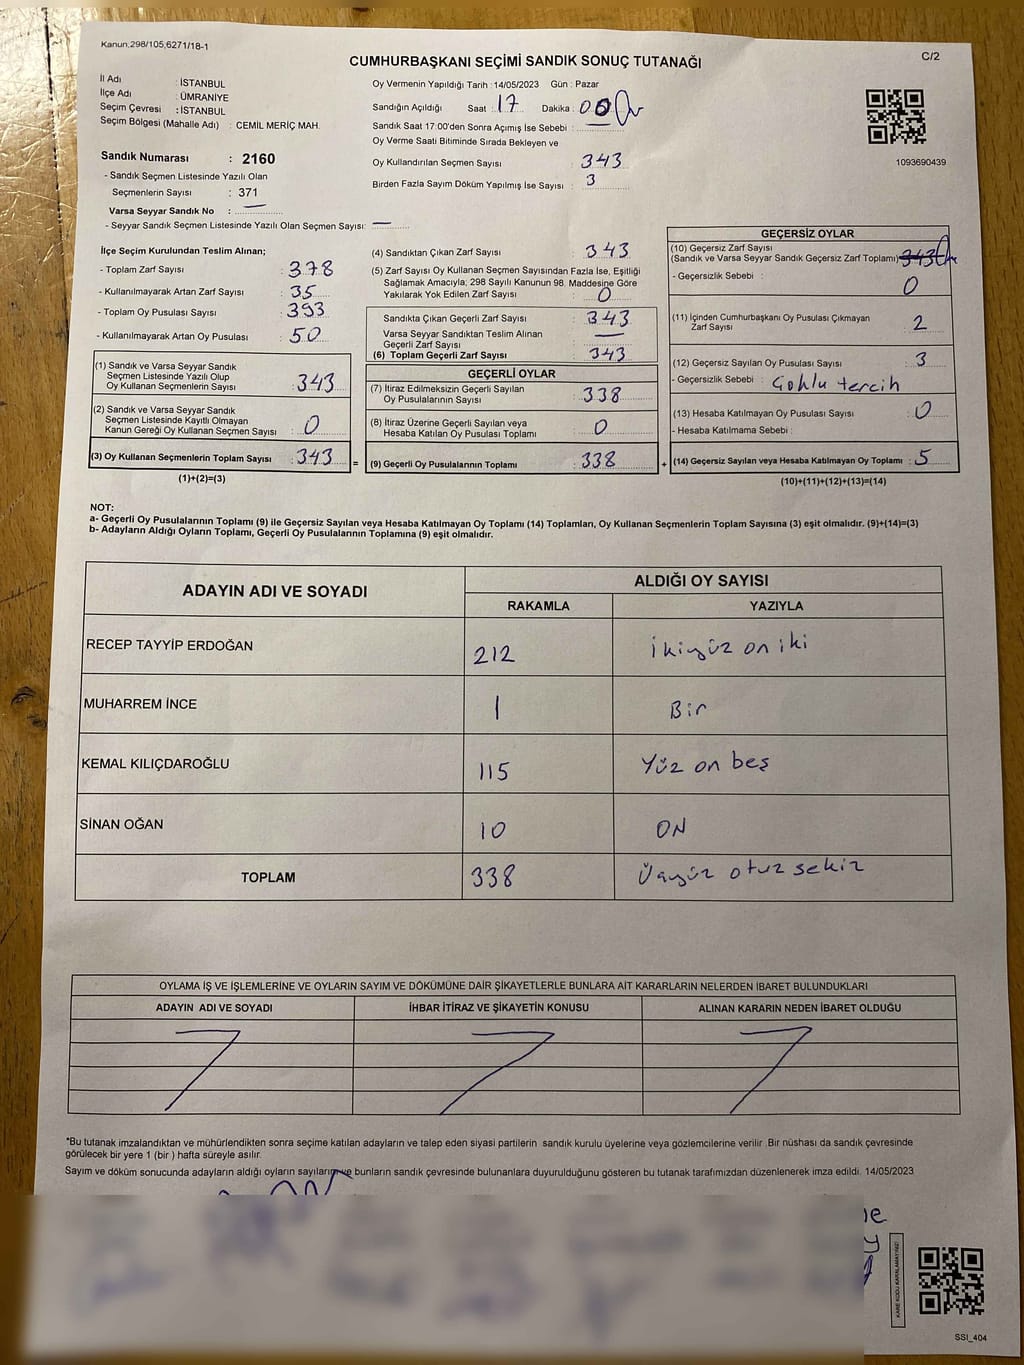 Kanun;298/105,6271/18-1
C/2
CUMHURBAŞKANI SEÇİMİ SANDIK SONUÇ TUTANAĞI
İl Adı : İSTANBUL
İlçe Adı : ÜMRANİYE
Seçim Çevresi : İSTANBUL
Seçim Bölgesi (Mahalle Adı) : CEMİL MERİÇ MAH.
Oy Vermenin Yapıldığı Tarih : 14/05/2023 Gün : Pazar
Sandığın Açıldığı Saat : 17 Dakika : 00
Sandık Saat 17:00'den Sonra Açımış İse Sebebi :
Oy Verme Saati Bitiminde Sırada Bekleyen ve
Oy Kullandırılan Seçmen Sayısı : 343
Birden Fazla Sayım Döküm Yapılmış İse Sayısı : 3
1093690439
Sandık Numarası : 2160
- Sandık Seçmen Listesinde Yazılı Olan
Seçmenlerin Sayısı : 371
Varsa Seyyar Sandık No : —
- Seyyar Sandık Seçmen Listesinde Yazılı Olan Seçmen Sayısı: —
İlçe Seçim Kurulundan Teslim Alınan;
- Toplam Zarf Sayısı : 378
- Kullanılmayarak Artan Zarf Sayısı : 35
- Toplam Oy Pusulası Sayısı : 393
- Kullanılmayarak Artan Oy Pusulası : 50
(1) Sandık ve Varsa Seyyar Sandık
Seçmen Listesinde Yazılı Olup
Oy Kullanan Seçmenlerin Sayısı : 343
(2) Sandık ve Varsa Seyyar Sandık
Seçmen Listesinde Kayıtlı Olmayan
Kanun Gereği Oy Kullanan Seçmen Sayısı : 0
(3) Oy Kullanan Seçmenlerin Toplam Sayısı : 343
(1)+(2)=(3)
=
(4) Sandıktan Çıkan Zarf Sayısı : 343
(5) Zarf Sayısı Oy Kullanan Seçmen Sayısından Fazla İse, Eşitliği
Sağlamak Amacıyla, 298 Sayılı Kanunun 98. Maddesine Göre
Yakılarak Yok Edilen Zarf Sayısı : 0
Sandıkta Çıkan Geçerli Zarf Sayısı : 343
Varsa Seyyar Sandıktan Teslim Alınan
Geçerli Zarf Sayısı : —
(6) Toplam Geçerli Zarf Sayısı : 343
GEÇERLİ OYLAR
(7) İtiraz Edilmeksizin Geçerli Sayılan
Oy Pusulalarının Sayısı : 338
(8) İtiraz Üzerine Geçerli Sayılan veya
Hesaba Katılan Oy Pusulası Toplamı : 0
(9) Geçerli Oy Pusulalarının Toplamı : 338
+
GEÇERSİZ OYLAR
(10) Geçersiz Zarf Sayısı
(Sandık ve Varsa Seyyar Sandık Geçersiz Zarf Toplamı) : 343
- Geçersizlik Sebebi : 0
(11) İçinden Cumhurbaşkanı Oy Pusulası Çıkmayan
Zarf Sayısı : 2
(12) Geçersiz Sayılan Oy Pusulası Sayısı : 3
- Geçersizlik Sebebi : Çohlu tercih
(13) Hesaba Katılmayan Oy Pusulası Sayısı : 0
- Hesaba Katılmama Sebebi :
(14) Geçersiz Sayılan veya Hesaba Katılmayan Oy Toplamı : 5
(10)+(11)+(12)+(13)=(14)
NOT:
a- Geçerli Oy Pusulalarının Toplamı (9) ile Geçersiz Sayılan veya Hesaba Katılmayan Oy Toplamı (14) Toplamları, Oy Kullanan Seçmenlerin Toplam Sayısına (3) eşit olmalıdır. (9)+(14)=(3)
b- Adayların Aldığı Oyların Toplamı, Geçerli Oy Pusulalarının Toplamına (9) eşit olmalıdır.
ADAYIN ADI VE SOYADI
ALDIĞI OY SAYISI
RAKAMLA YAZIYLA
RECEP TAYYİP ERDOĞAN 212 ikiyüz on iki
MUHARREM İNCE 1 Bir
KEMAL KILIÇDAROĞLU 115 Yüz on beş
SİNAN OĞAN 10 ON
TOPLAM 338 Üçyüz otuz sekiz
OYLAMA İŞ VE İŞLEMLERİNE VE OYLARIN SAYIM VE DÖKÜMÜNE DAİR ŞİKAYETLERLE BUNLARA AİT KARARLARIN NELERDEN İBARET BULUNDUKLARI
ADAYIN ADI VE SOYADI İHBAR İTİRAZ VE ŞİKAYETİN KONUSU ALINAN KARARIN NEDEN İBARET OLDUĞU
*Bu tutanak imzalandıktan ve mühürlendikten sonra seçime katılan adayların ve talep eden siyasi partilerin sandık kurulu üyelerine veya gözlemcilerine verilir .Bir nüshası da sandık çevresinde
görülecek bir yere 1 (bir ) hafta süreyle asılır.
Sayım ve döküm sonucunda adayların aldığı oyların sayılarını ve bunların sandık çevresinde bulunanlara duyurulduğunu gösteren bu tutanak tarafımızdan düzenlenerek imza edildi. 14/05/2023
KARE KODU KARALAMAYINIZ!
SSI_404